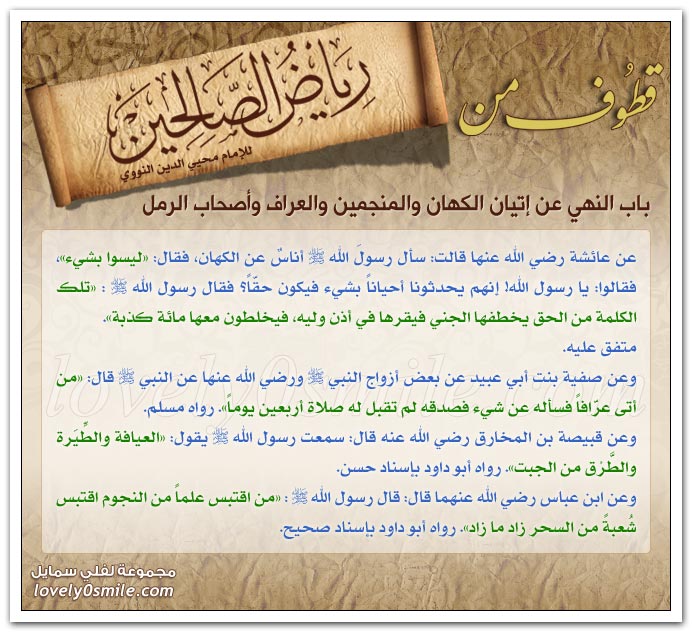 قطوف من
رياض الصالحين
للإمام محيي الدين النووي
باب النهي عن إتيان الكهان والمنجمين والعراف وأصحاب الرمل
عن عائشة رضي الله عنها قالت: سأل رسولَ الله ﷺ أناسٌ عن الكهان، فقال: «ليسوا بشيء»،
فقالوا: يا رسول الله! إنهم يحدثونا أحياناً بشيء فيكون حقّاً؟ فقال رسول الله ﷺ : «تلك
الكلمة من الحق يخطفها الجني فيقرها في أذن وليه، فيخلطون معها مائة كذبة».
متفق عليه.
وعن صفية بنت أبي عبيد عن بعض أزواج النبي ﷺ ورضي الله عنها عن النبي ﷺ قال: «من
أتى عرّافاً فسأله عن شيء فصدقه لم تقبل له صلاة أربعين يوماً». رواه مسلم.
وعن قبيصة بن المخارق رضي الله عنه قال: سمعت رسول الله ﷺ يقول: «العيافة والطِّيَرة
والطَّرْق من الجبت». رواه أبو داود بإسناد حسن.
وعن ابن عباس رضي الله عنهما قال: قال رسول الله ﷺ : «من اقتبس علماً من النجوم اقتبس
شُعبةً من السحر زاد ما زاد». رواه أبو داود بإسناد صحيح.
lovely0smile.com
مجموعة لفلي سمايل
lovely0smile.com